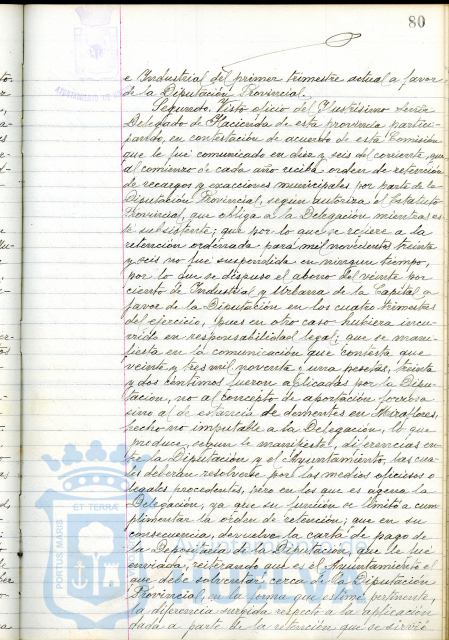 80
e Industrial del primer trimestre actual a favor
de la Diputación Provincial.
Segundo. Visto oficio del Ilustrísimo Señor
Delegado de Hacienda de esta provincia partici-
pando, en contestación de acuerdo de esta Comisión
que le fué comunicado en diez y seis del corriente, que
al comienzo de cada año recibe orden de retención
de recargos y exacciones municipales por parte de la
Diputación Provincial, según autoriza el Estatuto
Provincial, que obliga a la Delegación mientras es-
té subsistente; que por lo que se refiere a la
retención ordenada para mil novecientos treinta
y seis no fué suspendida en ningun tiempo,
por lo que se dispuso el abono del veinte por
ciento de Industrial y Urbana de la Capital a
favor de la Diputación en los cuatro trimestres
del ejercicio, pues en otro caso hubiera incu-
rrido en responsabilidad legal; que se mani-
fiesta en la comunicación que contesta que
veinte y tres mil noventa y una pesetas, treinta
y dos céntimos fueron aplicadas por la Dipu-
tación, no al concepto de aportación forzosa
sino al de estancia de dementes en Miraflores,
hecho no imputable a la Delegación, lo que
produce, según le manifieste, diferencias en-
tre la Diputación y el Ayuntamiento, las cua-
les deberán resolverse por los medios oficiosos o
legales procedentes, pero en los que es agena la
Delegación, ya que su función se limitó a cum-
plimentar la orden de retención; que en su
consecuencia, devuelve la carta de pago de
la Depositaría de la Diputación, que le fué
enviada, reiterando que es el Ayuntamiento el
que debe solventar cerca de la Diputación
Provincial, en la forma que estime pertinente,
la diferencia surgida respecto a la aplicación
dada a parte de la retención que se sirvió
PORTUS MARIS ET TERRAE